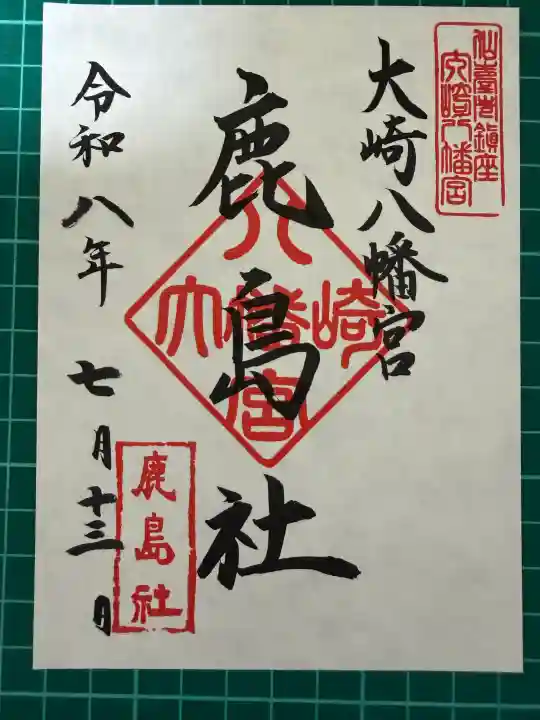 仙臺城鎮座
大崎八幡宮
大崎八幡宮
鹿島社
八
大崎
幡
宮
鹿島社
令和八年七月十三日